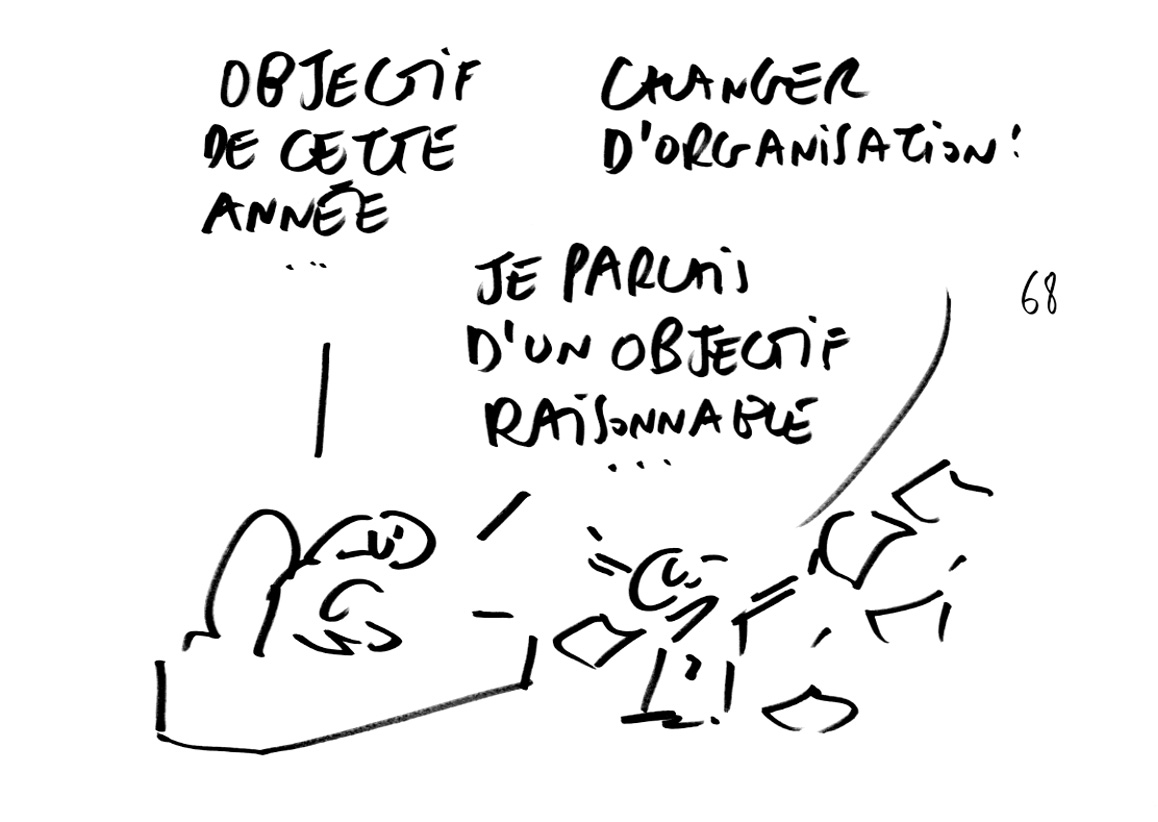 OBJECTIF
DE CETTE
ANNÉE
...
CHANGER
D'ORGANISATION!
JE PARLAIS
D'UN OBJECTIF
RAISONNABLE
...
68